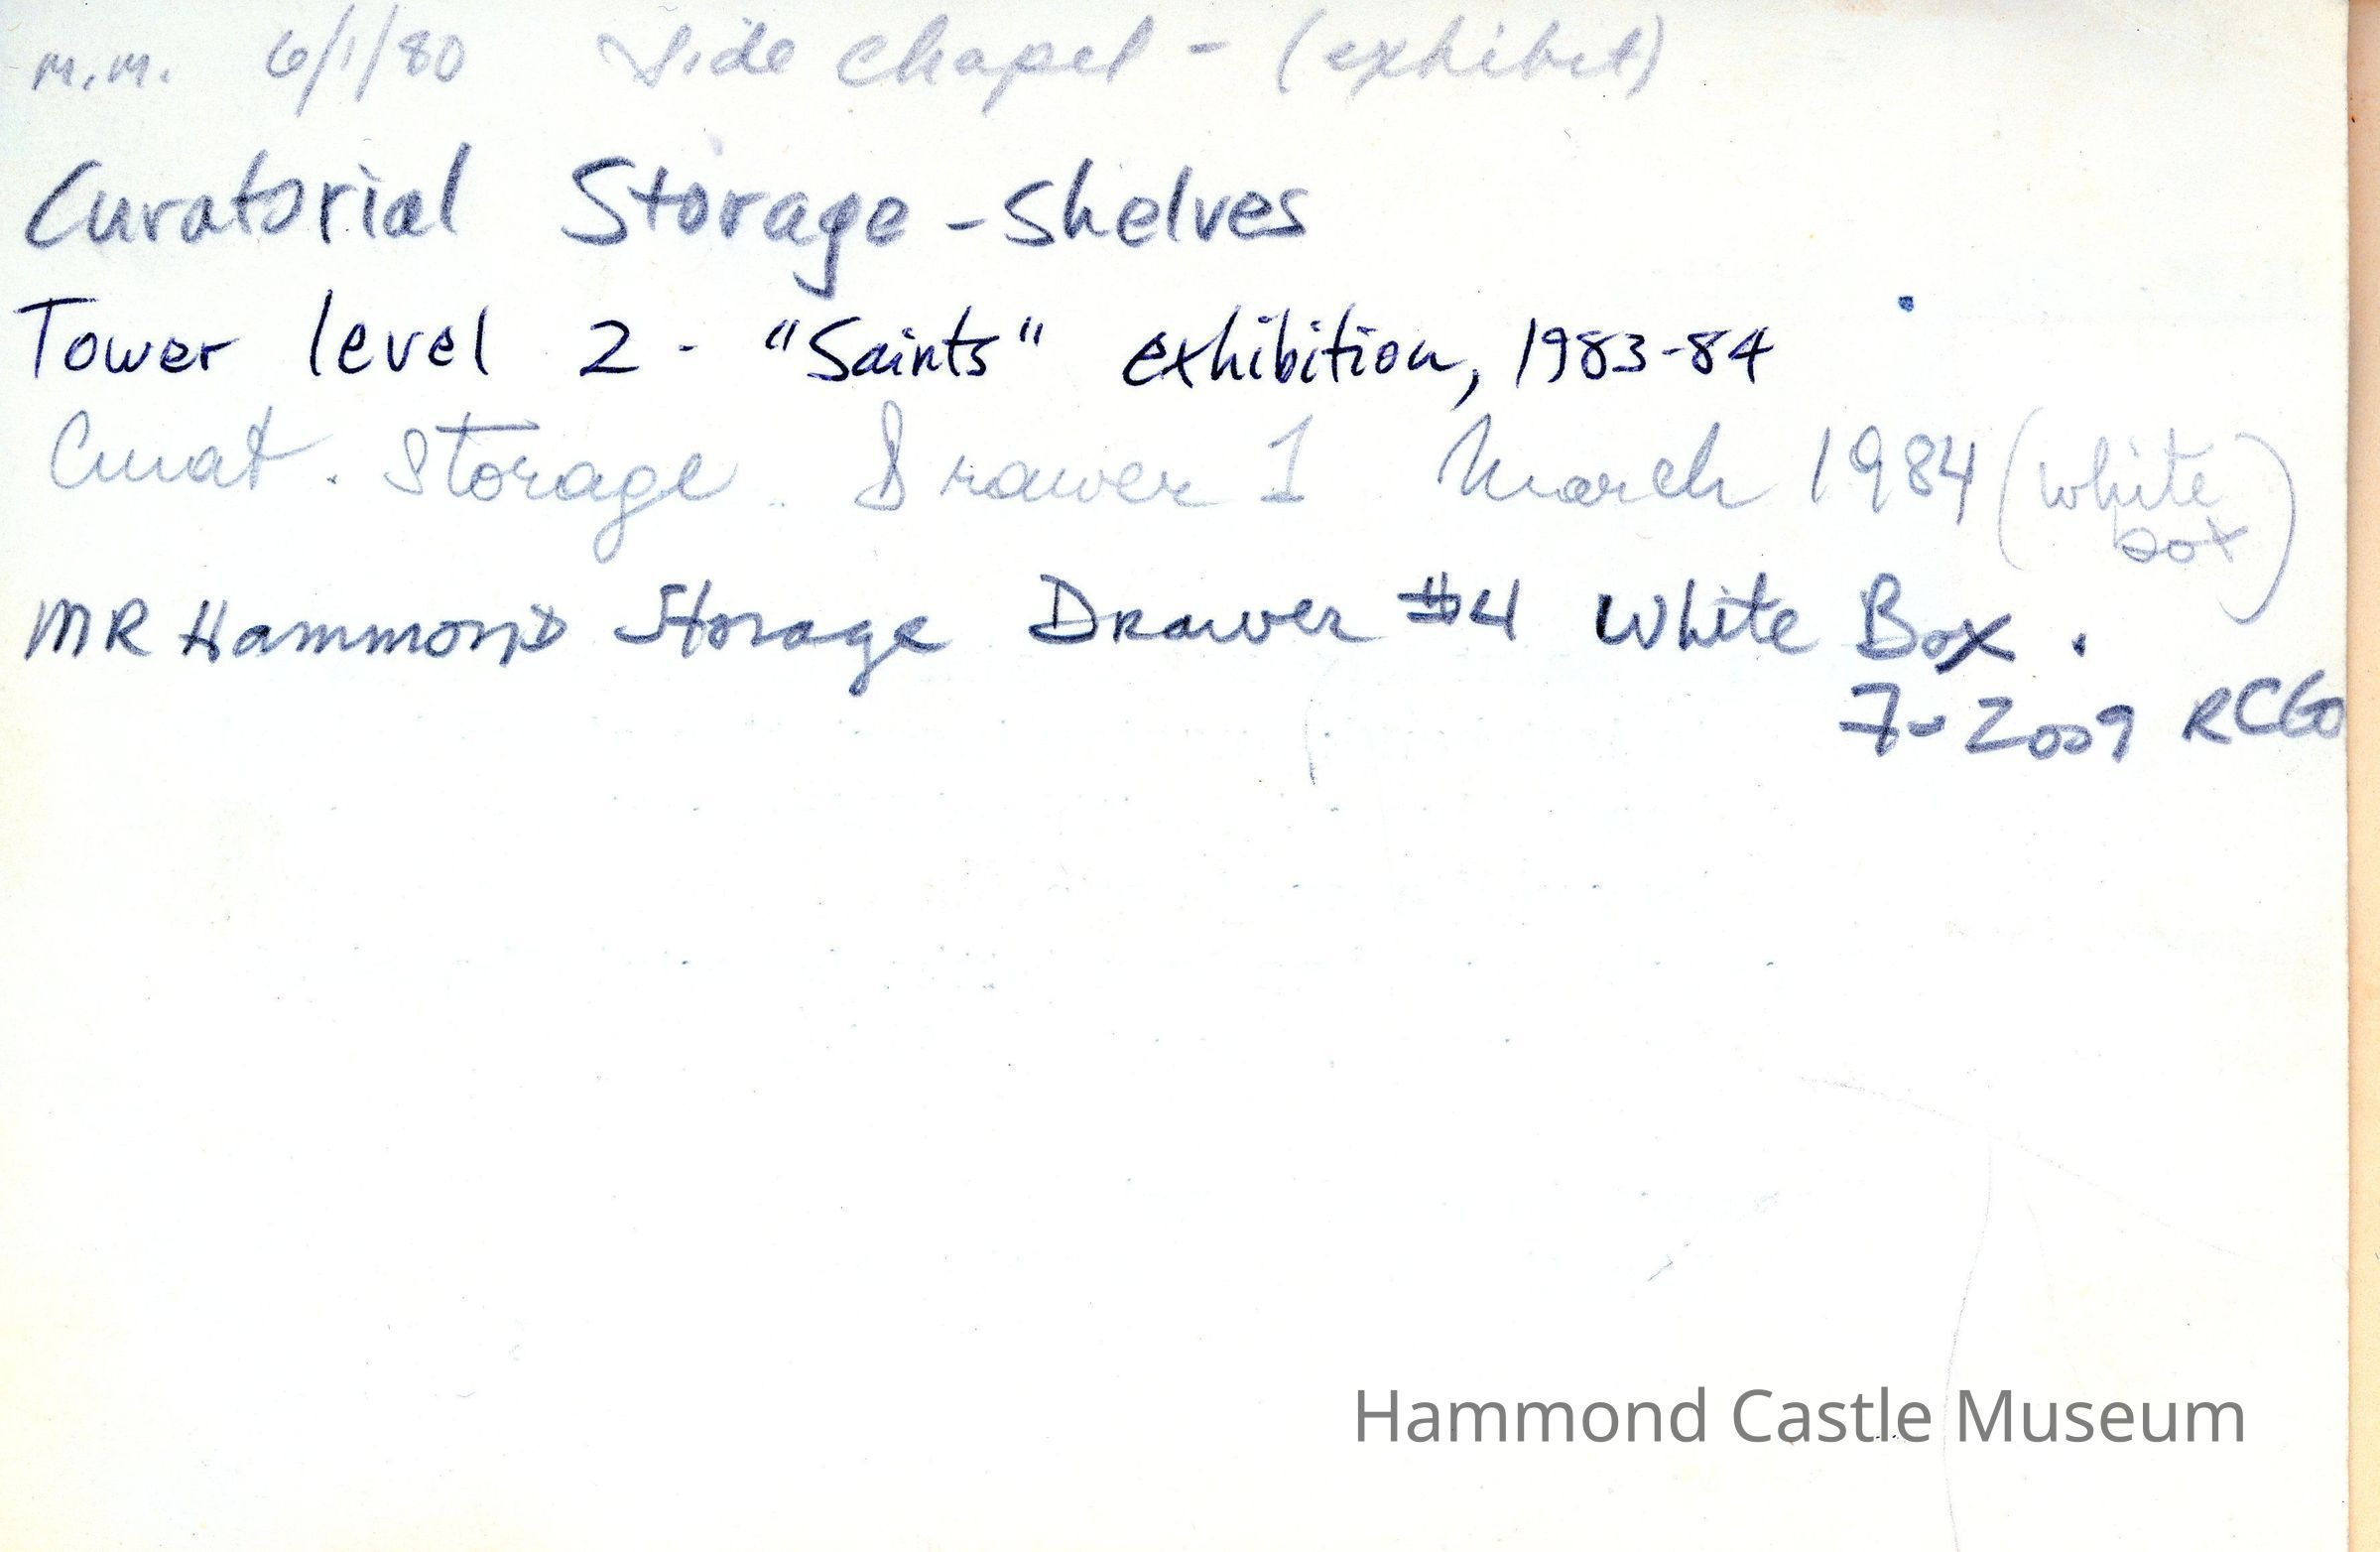 m.m. 6/1/80 Side Chapel - (exhibit)
Curatorial Storage - Shelves
Tower level 2 - "Saints" exhibition, 1983-84
Curat. Storage Drawer 1 March 1984 (white box)
MR Hammond Storage Drawer #4 White Box.
7-2009 RCG
Hammond Castle Museum